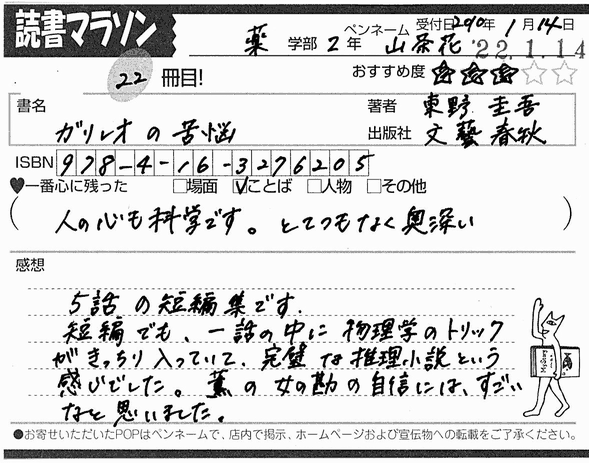 読書マラソン
薬 学部 2年 ペンネーム 山茶花 受付日2010年 1月14日
'22.1.14
22 冊目!
おすすめ度 ★★★☆☆
書名
ガリレオの苦悩
著者 東野 圭吾
出版社 文藝春秋
ISBN 978-4-16-3276205
♥一番心に残った □場面 ☑ことば □人物 □その他
(人の心も科学です。とてつもなく奥深い)
感想
5話の短編集です。
短編でも、一話の中に物理学のトリック
がきっちり入っていて、完璧な推理小説という
感じでした。薫の女の勘の自信には、すごい
なと思いました。
●お寄せいただいたPOPはペンネームで、店内で掲示、ホームページおよび宣伝物への転載をご了承ください。